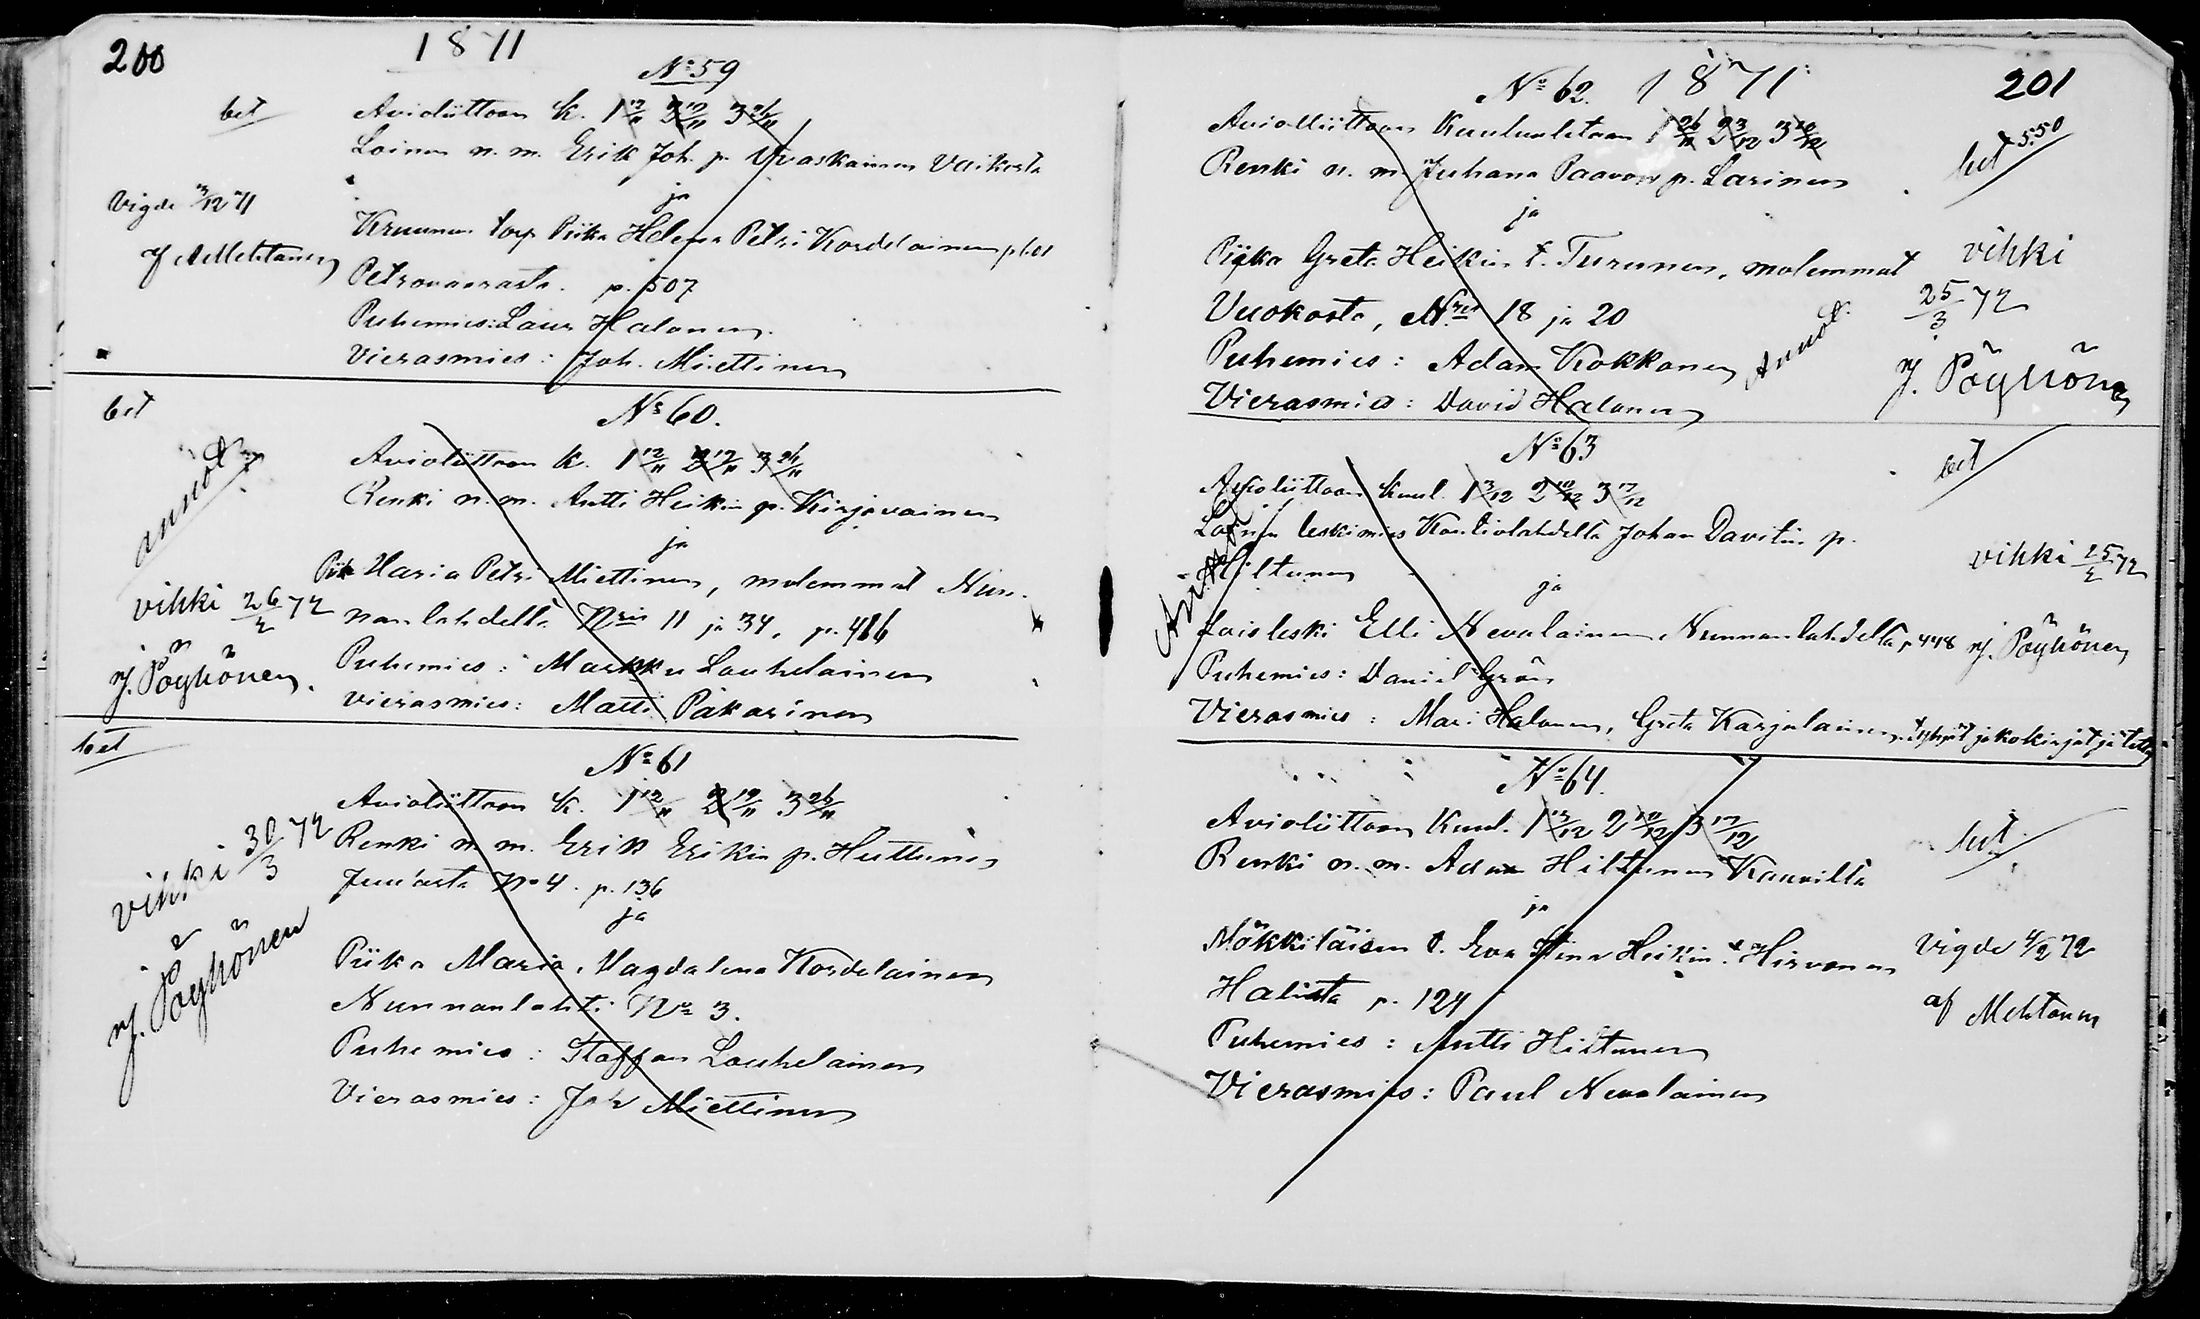 200
1871
No 59
bet
Avioliittoon k. 1 12/11 2 19/11 3 26/11
Loinen n. m. Erik Joh. p. Vaikosta
ja
Vigde 3/12 71
af A Mehtonen
Kruunun torp Piika Helena Petri Kordelainen
Petrovaarasta. p. 507
Puhemies: Laur Halonen
Vierasmies: Joh. Miettinen
bet
No 60.
Avioliittoon k. 1 12/11 2 19/11 3 26/11
Renki n. m. Antti Heikin p. Kirjavainen
ja
annot
Piik Maria Petri Miettinen, molemmat Nun-
nanlahdella Nris 11 ja 34, p. 416
vihki 26/2 72
rj. Pöyhönen
Puhemies: Markku Louhelainen
Vierasmies: Matti Pakarinen
bet
No 61
Avioliittoon k. 1 12/11 2 19/11 3 26/11
Renki n. m. Erik Erikin p. Huttunen
Juu'asta No 4. p. 136
ja
vihki 30/3 72
rj. Pöyhönen
Piika Maria Magdalena Kordelainen
Nunnanlahti No 3.
Puhemies: Staffan Louhelainen
Vierasmies: Joh Miettinen
201
No 62. 1871
Avioliittoon Kuulutetaan 1 26/11 2 3/12 3 10/12
bet 5:50
Renki n. m. Juhana Paavon p. Larinen
ja
Piika Greta Heikin t. Turunen, molemmat
vihki
25/3 72
rj. Pöyhönen
Vuokosta, Nris 18 ja 20
Puhemies: Adam Kokkonen
Annot.
Vierasmies: David Halonen
No 63
bet
Avioliittoon kuul. 1 3/12 2 10/12 3 17/12
Loinen leskimies Kontiolahdella Johan Davitin p.
Hiltunen
ja
vihki 25/2 72
rj. Pöyhönen
Loisleski Elli Nevalainen Nunnanlahdella, p 448
Puhemies: Daniel Grön
Vierasmies: Mari Halonen, Greta Karjalainen
No 64.
Avioliittoon Kuul. 1 3/12 2 10/12 3 17/12
bet
Renki n. m. Adam Hiltunen Kauvilla
ja
Mökkiläisen t. Eva Stina Heikin t Hirvonen
Vigde 4/2 72
af Mehtonen
Halista p. 124
Puhemies: Antti Hiltunen
Vierasmies: Paul Nevalainen